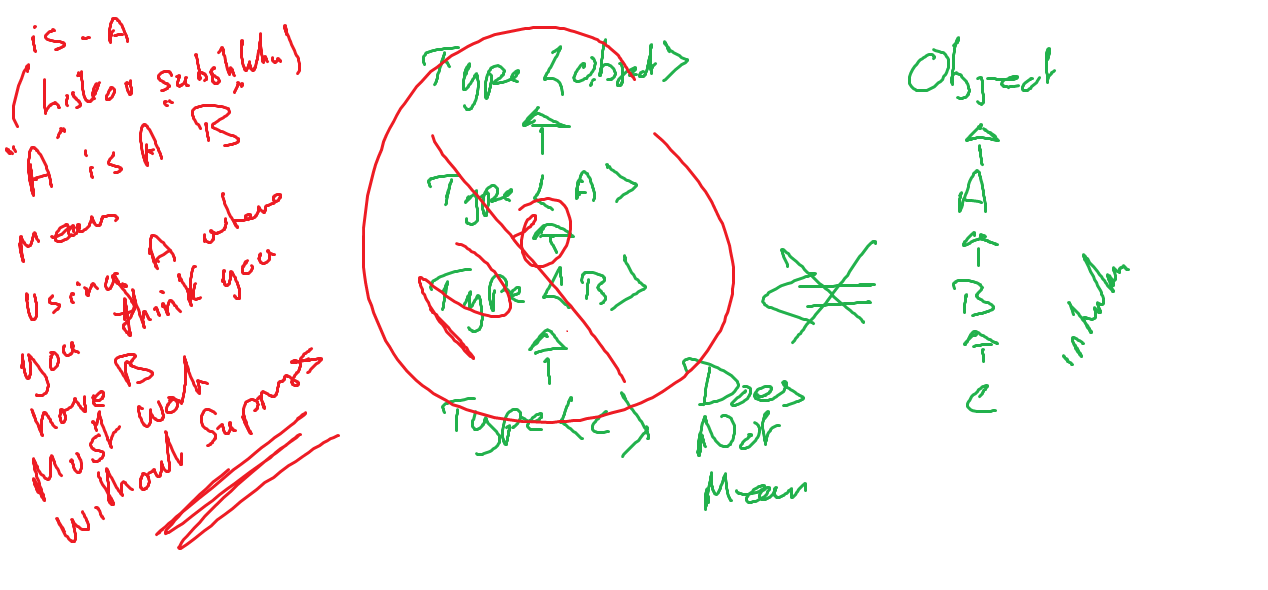 is-A
(liskov substi
"A" is A "B"
Means
Using A where
you think you
have B
Must work
Without Suprises
Type <object>
Type <A>
Type <B>
Type <c>
Does
Not
Mean
Object
A
B
C